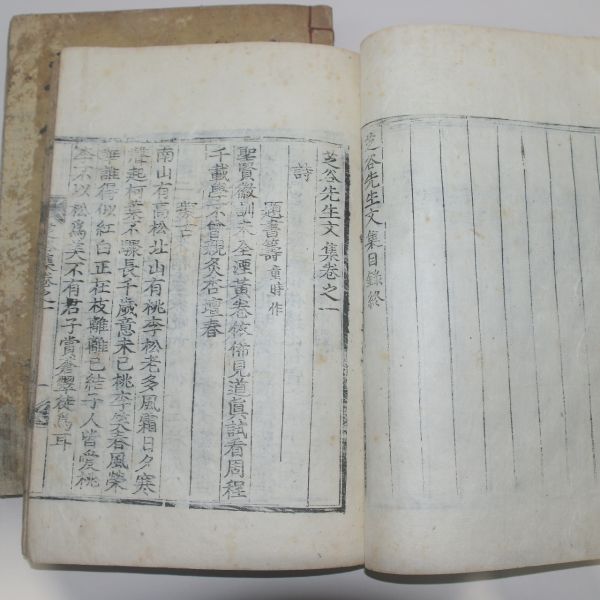 芝谷先生文集目錄終
芝谷先生文集卷之一
詩
題書籌 童時作
聖賢微訓未全湮黃卷依俙見道眞試看周程
千載學不曾親炙杏壇春
南山有高松北山有桃李松老多風霜日夕寒
起柯葉不 長千歲意未已桃李 春風榮
誰得似紅白正在枝離離已結子人皆愛桃
李不以松爲美不有君子賞蒼翠徒爲耳
集卷之一